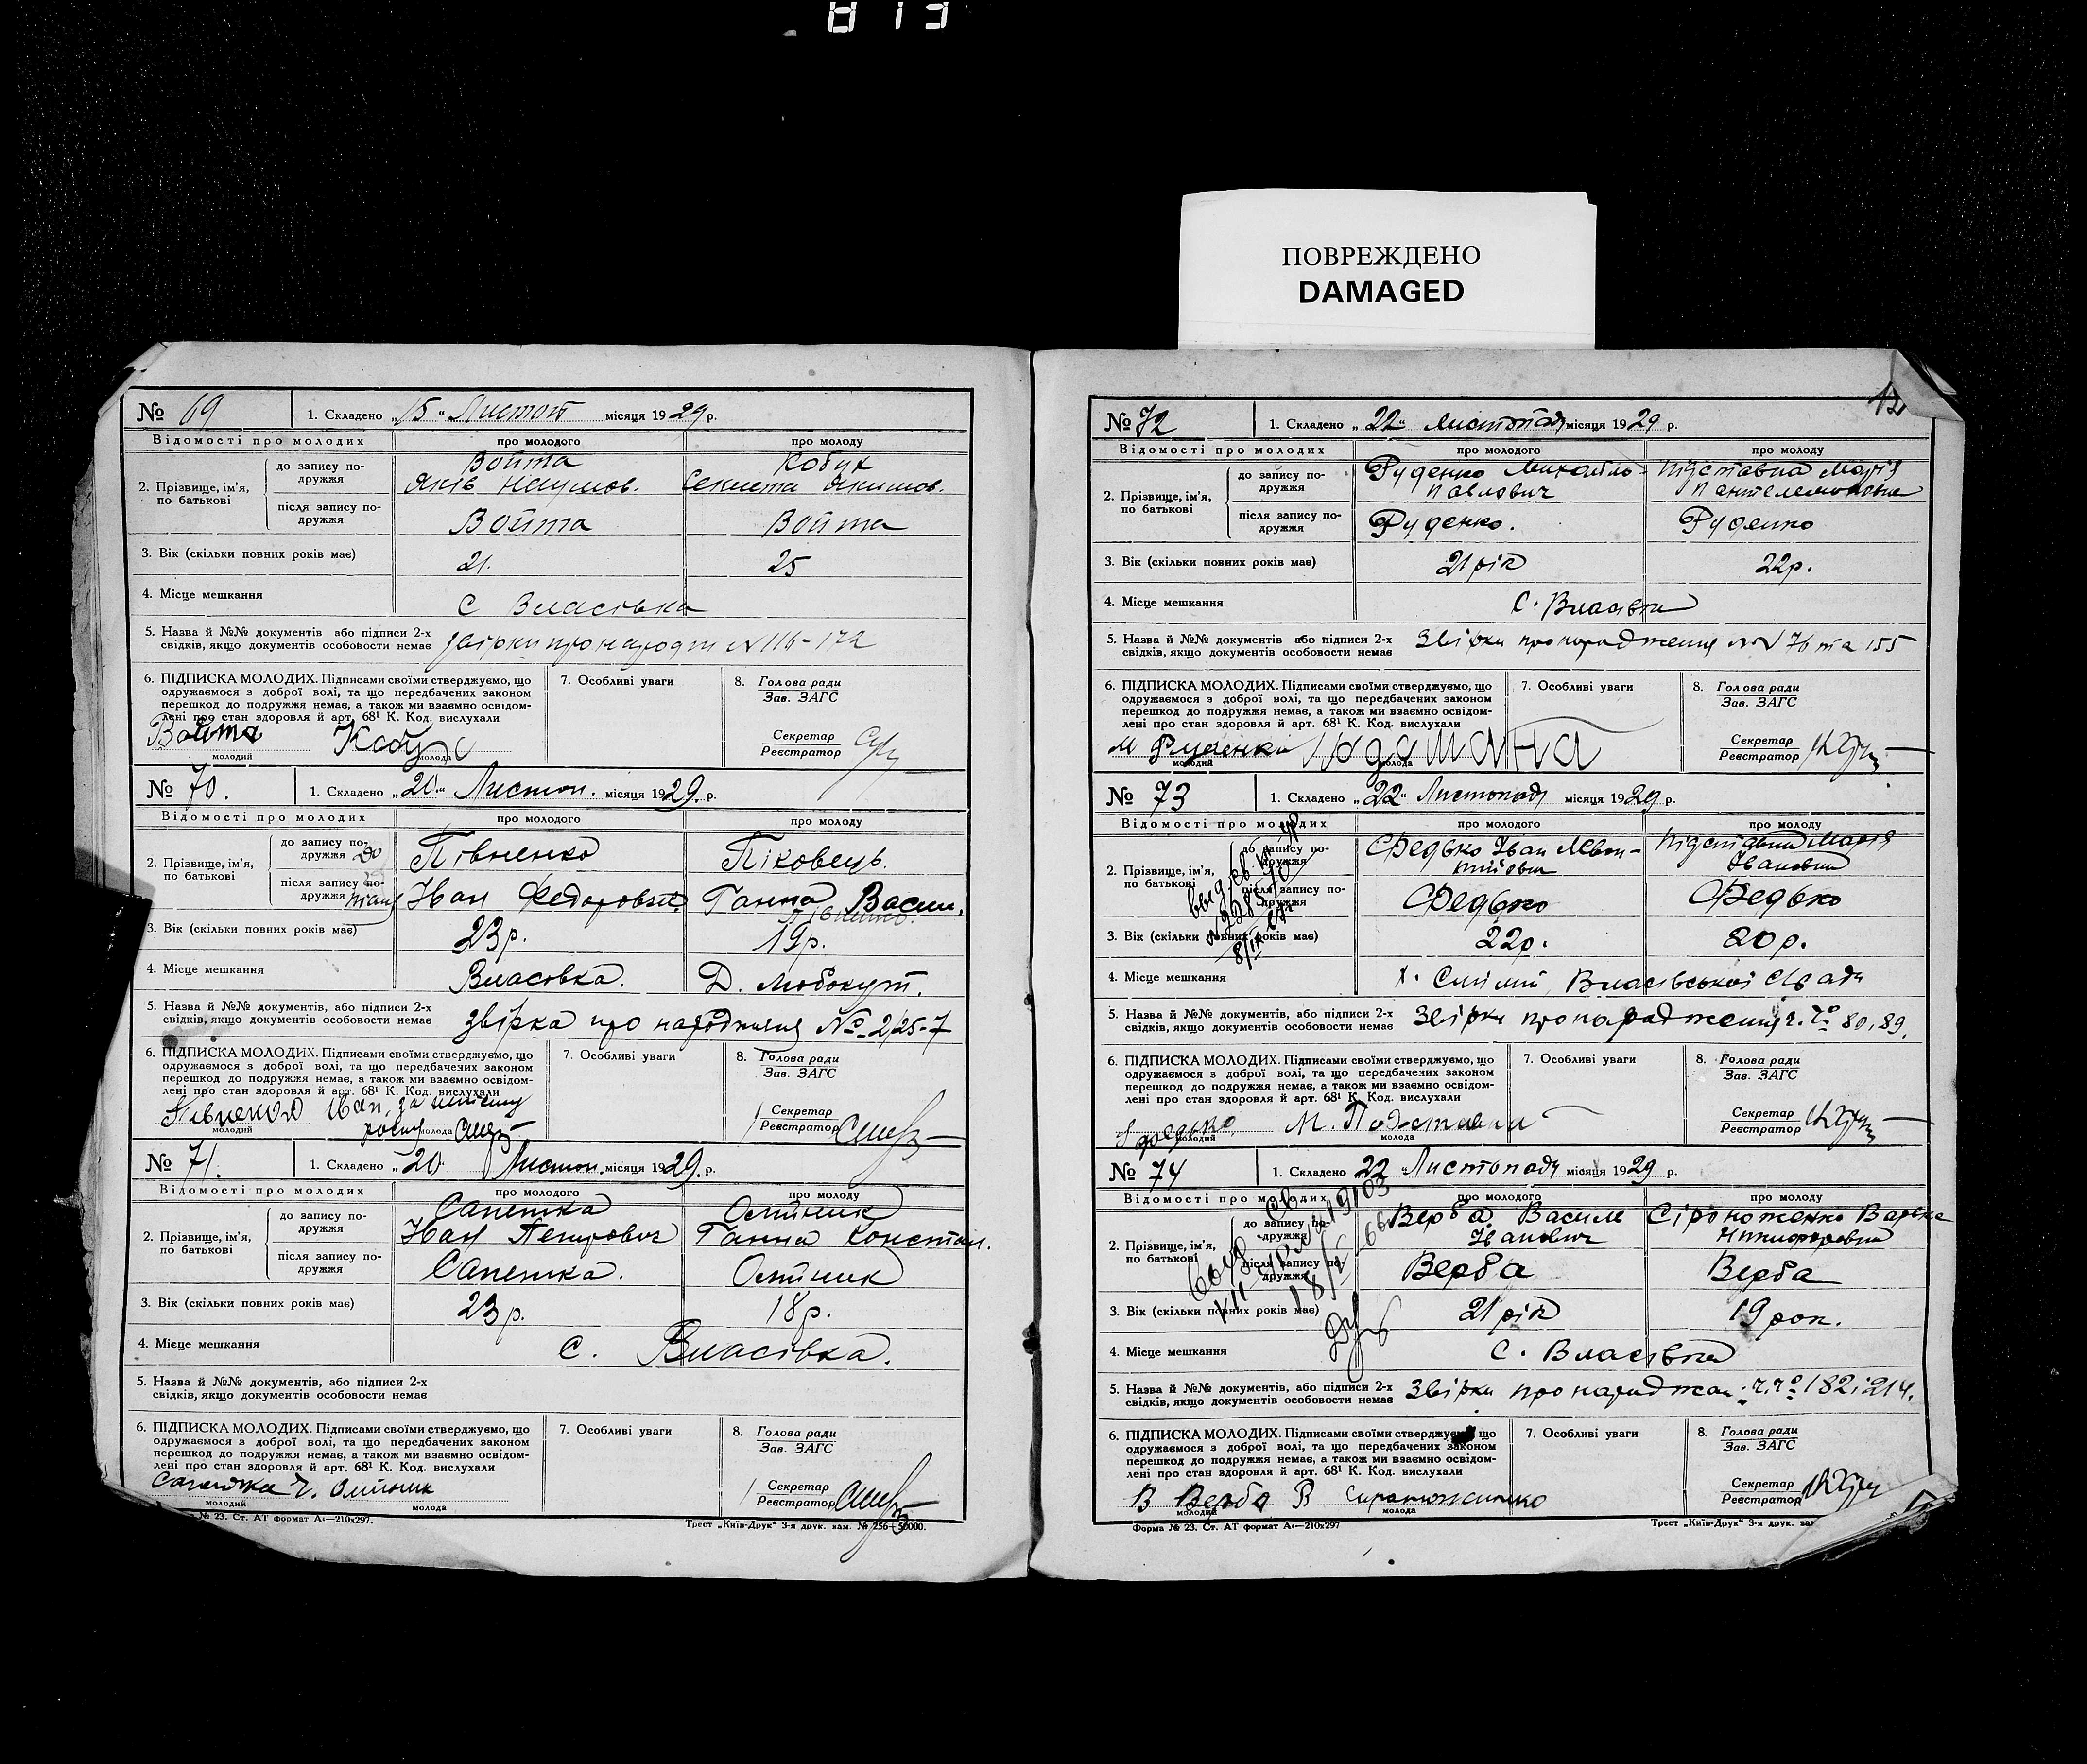 813
ПОВРЕЖДЕНО
DAMAGED
№ 69
1. Складено „15" Листоп місяця 1929 р.
Відомості про молодих
про молодого
про молоду
2. Прізвище, ім'я, по батькові
до запису по-
дружжя
Война
Яків Наумов.
Кобук
Секлета Якимов.
після запису по-
дружжя
Война
Война
3. Вік (скільки повних років має)
21.
25
4. Місце мешкання
с Власівка
5. Назва й №№ документів або підписи 2-х
свідків, якщо документів особовости немає
звірки про народж N 116-172
6. ПІДПИСКА МОЛОДИХ. Підписами своїми стверджуємо, що
одружаємося з доброї волі, та що передбачених законом
перешкод до подружжя немає, а також ми взаємно освідом-
лені про стан здоровля й арт. 68¹ К. Код. вислухали
Война
молодий
молода
7. Особливі уваги
8. Голова ради
Зав. ЗАГС
Секретар
Реєстратор
№ 70.
1. Складено „20" Листоп. місяця 1929. р.
Відомості про молодих
про молодого
про молоду
2. Прізвище, ім'я,
по батькові
до запису по-
дружжя
Півненко
Піковець.
після запису по-
дружжя
Іван Федорович
Ганна Васил.
3. Вік (скільки повних років має)
23р.
19р.
4. Місце мешкання
Власовка.
Д. Любокут.
5. Назва й №№ документів, або підписи 2-х
свідків, якщо документів особовости немає
звірка про народження № 2/25-7
6. ПІДПИСКА МОЛОДИХ. Підписами своїми стверджуємо, що
одружаємося з доброї волі, та що передбачених законом
перешкод до подружжя немає, а також ми взаємно освідом-
лені про стан здоровля й арт. 68¹ К. Код. вислухали
Півненко Іван, за
молодий
молода
7. Особливі уваги
8. Голова ради
Зав. ЗАГС
Секретар
Реєстратор
№ 71.
1. Складено „20" Листоп. місяця 1929. р.
Відомості про молодих
про молодого
про молоду
2. Прізвище, ім'я,
по батькові
до запису по-
дружжя
Сапетка
Іван Петрович
Олійник
Ганна Констан.
після запису по-
дружжя
Сапетка.
Олійник
3. Вік (скільки повних років має)
23р.
18р.
4. Місце мешкання
с. Власівка.
5. Назва й №№ документів, або підписи 2-х
свідків, якщо документів особовости немає
6. ПІДПИСКА МОЛОДИХ. Підписами своїми стверджуємо, що
одружаємося з доброї волі, та що передбачених законом
перешкод до подружжя немає, а також ми взаємно освідом-
лені про стан здоровля й арт. 68¹ К. Код. вислухали
Г. Олійник
молодий
молода
7. Особливі уваги
8. Голова ради
Зав. ЗАГС
Секретар
Реєстратор
№ 23. Ст. АТ формат А₄—210х297.
Трест „Київ-Друк" 3-я друк. зам. № 256—50000.
12
№ 72
1. Складено „22" Листопад місяця 1929 р.
Відомості про молодих
про молодого
про молоду
2. Прізвище, ім'я,
по батькові
до запису по-
дружжя
Руденко Михайло
Павлович
Підставна Марія
Пантелемонівна
після запису по-
дружжя
Руденко.
Руденко
3. Вік (скільки повних років має)
21 рік
22р.
4. Місце мешкання
с. Власівка
5. Назва й №№ документів або підписи 2-х
свідків, якщо документів особовости немає
Звірки про народження NN 76 та 155
6. ПІДПИСКА МОЛОДИХ. Підписами своїми стверджуємо, що
одружаємося з доброї волі, та що передбачених законом
перешкод до подружжя немає, а також ми взаємно освідом-
лені про стан здоровля й арт. 68¹ К. Код. вислухали
М Руденко
молодий
молода
7. Особливі уваги
8. Голова ради
Зав. ЗАГС
Секретар
Реєстратор
№ 73
1. Складено „22" Листопада місяця 1929 р.
Відомості про молодих
про молодого
про молоду
2. Прізвище, ім'я,
по батькові
до запису по-
дружжя
Федько Іван Левон-
тійович
Підставна Марія
Івановна
після запису по-
дружжя
Федько
Федько
3. Вік (скільки повних років має)
22р.
20р.
4. Місце мешкання
Власівської с/ради
5. Назва й №№ документів, або підписи 2-х
свідків, якщо документів особовости немає
Звірки про народження ч.ч° 80, 89.
6. ПІДПИСКА МОЛОДИХ. Підписами своїми стверджуємо, що
одружаємося з доброї волі, та що передбачених законом
перешкод до подружжя немає, а також ми взаємно освідом-
лені про стан здоровля й арт. 68¹ К. Код. вислухали
Федько
М. Подставна
молодий
молода
7. Особливі уваги
8. Голова ради
Зав. ЗАГС
Секретар
Реєстратор
№ 74
1. Складено 22 "Листопада місяця 1929 р.
Відомості про молодих
про молодого
про молоду
2. Прізвище, ім'я,
по батькові
до запису по-
дружжя
Верба Василь
Іванович
Сіроноженко Варека
Никифоровна
після запису по-
дружжя
Верба
Верба
3. Вік (скільки повних років має)
21 рік
19 рок.
4. Місце мешкання
с. Власівка
5. Назва й №№ документів, або підписи 2-х
свідків, якщо документів особовости немає
Звірки про народжен. ч.ч° 182 і 214.
6. ПІДПИСКА МОЛОДИХ. Підписами своїми стверджуємо, що
одружаємося з доброї волі, та що передбачених законом
перешкод до подружжя немає, а також ми взаємно освідом-
лені про стан здоровля й арт. 68¹ К. Код. вислухали
В Верба В
молодий
молода
7. Особливі уваги
8. Голова ради
Зав. ЗАГС
Секретар
Реєстратор
Форма № 23. Ст. АТ формат А₄—210х297
Трест „Київ-Друк" 3-я друк. зам